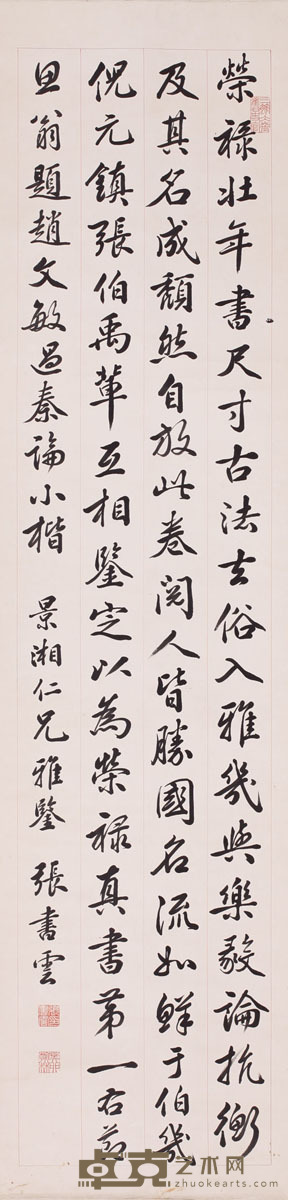 榮祿壯年書尺寸古法去俗入雅幾與樂毅論抗衡
及其名成頹然自放此卷閱人皆勝國名流如鮮于伯幾
倪元鎮張伯禹輩互相鑒定以為榮祿真書第一右節
思翁題趙文敏過秦論小楷 景湘仁兄雅鑒 張書雲
卓克艺术网
zhuokearts.com